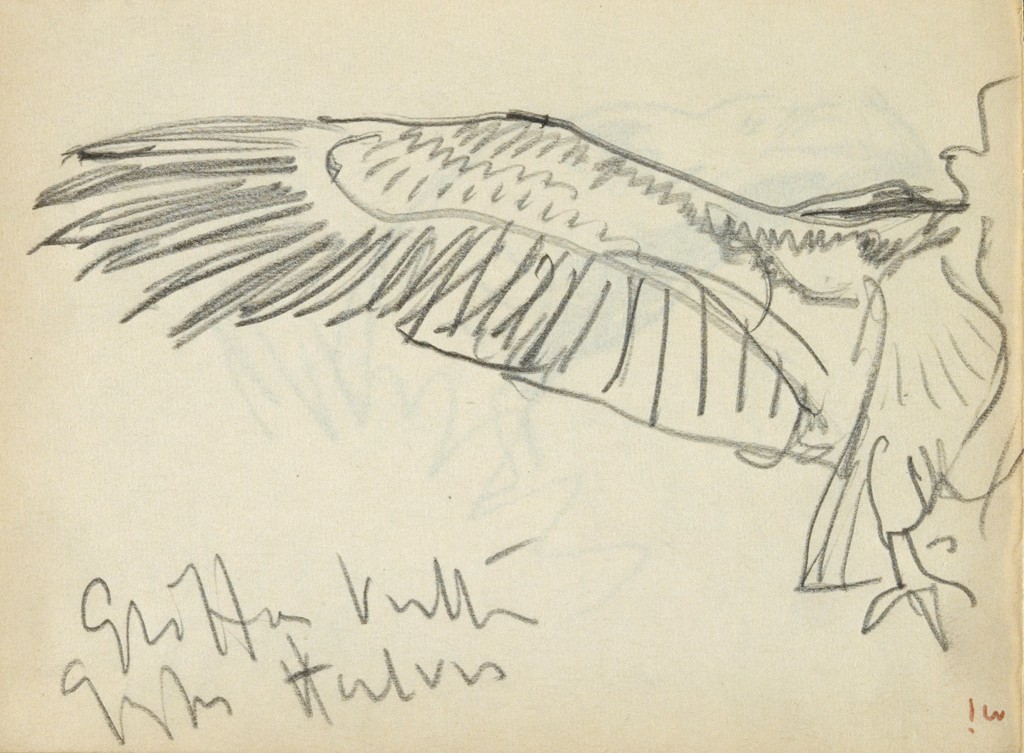 Griffon Vulture
Gyps Fulvus